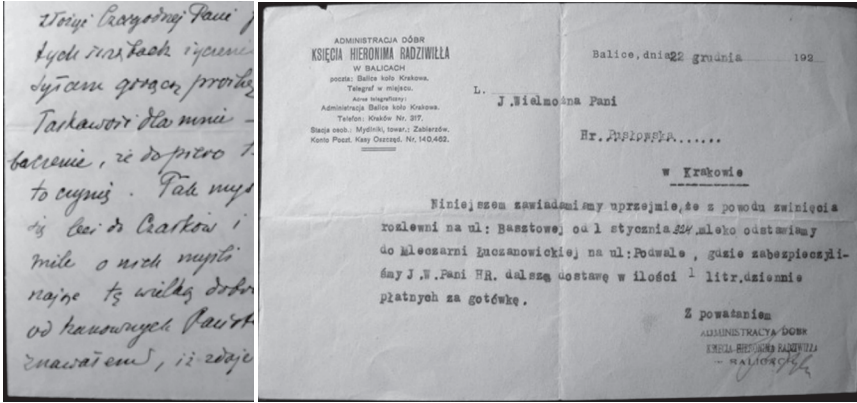 złożyć Czcigodnej Pani
tych świętach i życzenie
Taskawość dla mnie -
baczenie, że dopiero
to czynię. Tak
się do i
mile o nich myśli
tę wielką
od Szanownych
ADMINISTRACJA DÓBR
KSIĘCIA HIERONIMA RADZIWIŁŁA
W BALICACH
poczta: Balice koło Krakowa.
Telegraf w miejscu.
Adres telegraficzny:
Administracja Balice koło Krakowa.
Telefon: Kraków Nr. 317.
Stacja osob.: Mydlniki, towar.: Zabierzów.
Konto Poczt. Kasy Oszczęd. Nr. 140,462.
Balice, dnia 22 grudnia 192
L.
J.Wielmożna Pani
Hr. Pusłowska......
w Krakowie
Niniejszem zawiadamiamy uprzejmie,że z powodu zwinięcia
rozlewni na ul: Basztowej od 1 stycznia 924.mleko odstawiamy
do Mleczarni Łuczanowickiej na ul:Podwale , gdzie zabezpieczyli-
śmy J.W.Pani HR. dalszą dostawę w ilości 1 litr.dziennie
płatnych za gotówkę.
Z poważaniem
ADMINISTRACYA DÓBR
KSIĘCIA HIERONIMA RADZIWIŁŁA